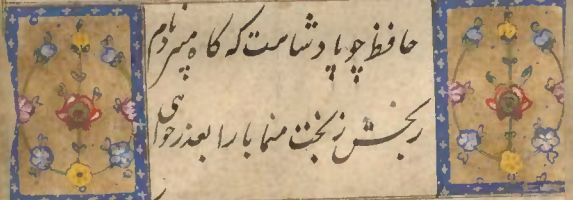 حافظ چو پادشاهت که کاه میبرد نام
رنجش ز بخت منما بازا بعذر خواهی